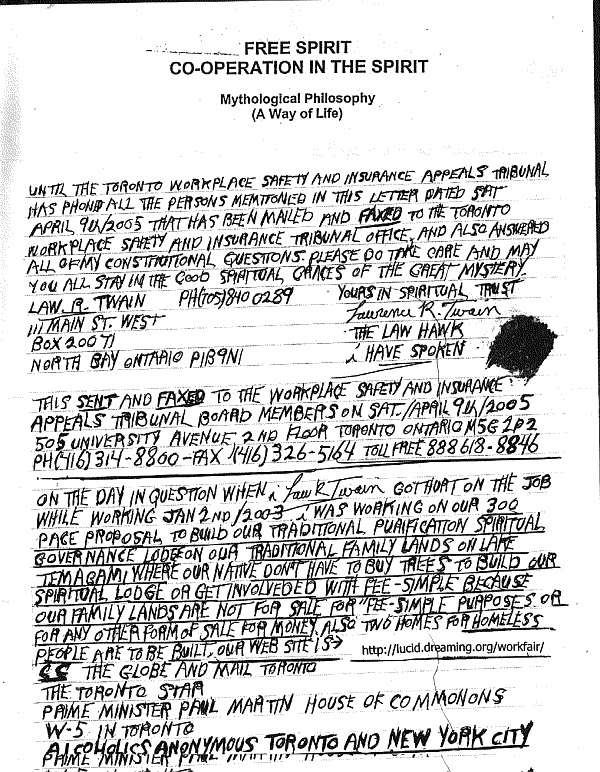 FREE SPIRIT
CO-OPERATION IN THE SPIRIT
Mythological Philosophy
(A Way of Life)
UNTIL THE TORONTO WORKPLACE SAFETY AND INSURANCE APPEALS TRIBUNAL
HAS PHOND ALL THE PERSONS MEMTIONED IN THIS LETTER DATED SAT
APRIL 9th/2005 THAT HAS BEEN MAILED AND FAXED TO THE TORONTO
WORKPLACE SAFETY AND INSURANCE TRIBUNAL OFFICE, AND ALSO ANSWERED
ALL OF MY CONSTITUTIONAL QUESTIONS. PLEASE DO TAKE CARE AND MAY
YOU ALL STAY IN THE GOOD SPIRITUAL GRACES OF THE GREAT MYSTERY.
LAW. R. TWAIN PH(705) 840 0289 YOURS IN SPIRITUAL TRUST
Lawrence R. Twain
111 MAIN ST. WEST THE LAW HAWK
BOX 20071 i HAVE SPOKEN
NORTH BAY ONTARIO P1B9N1
THIS SENT AND FAXED TO THE WORKPLACE SAFETY AND INSURANCE
APPEALS TRIBUNAL BOARD MEMBERS ON SAT./APRIL 9th/2005
505 UNIVERSITY AVENUE 2ND FLOOR TORONTO ONTARIO M5G 2P2
PH(416) 314-8800-FAX 1(416) 326-5164 TOLL FREE 888 618-8846
ON THE DAY IN QUESTION WHEN i Law R Twain GOT HURT ON THE JOB
WHILE WORKING JAN 2ND/2003 i WAS WORKING ON OUR 300
PAGE PROPOSAL TO BUILD OUR TRADITIONAL PURIFICATION SPIRITUAL
GOVERNANCE LODGE ON OUR TRADITIONAL FAMILY LANDS ON LAKE
TEMAGAMI WHERE OUR NATIVE DON'T HAVE TO BUY TREES TO BUILD OUR
SPIRITUAL LODGE OR GET INVOLVEDED WITH FEE-SIMPLE BECAUSE
OUR FAMILY LANDS ARE NOT FOR SALE FOR "FEE-SIMPLE PURPOSES OR
FOR ANY OTHER FORM OF SALE FOR MONEY. ALSO TWO HOMES FOR HOMELESS
PEOPLE ARE TO BE BUILT. OUR WEB SITE IS → http://lucid.dreaming.org/workfair/
CC THE GLOBE AND MAIL TORONTO
THE TORONTO STAR
PRIME MINISTER PAUL MARTIN HOUSE OF COMMONONS
W-5 IN TORONTO
ALCOHOLICS ANONYMOUS TORONTO AND NEW YORK CITY
PRIME MINISTER PAUL MARTIN